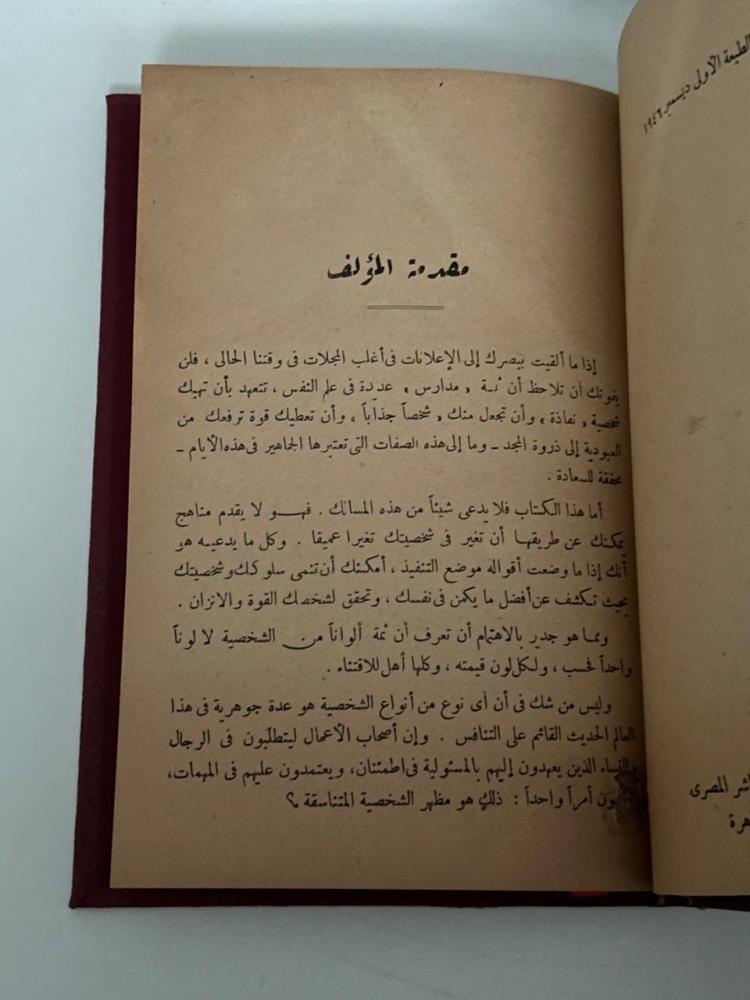 الطبعة الأولى ديسمبر ١٩٤٦
مقدمة المؤلف
إذا ما ألقيت ببصرك إلى الإعلانات فى أغلب المجلات فى وقتنا الحالى ، فلن
يفوتك أن تلاحظ أن ثمة « مدارس » عديدة فى علم النفس ، تتعهد بأن تهبك
شخصية « نفاذة » وأن تجعل منك « شخصاً جذاباً » وأن تعطيك قوة ترفعك من
العبودية إلى ذروة المجد ــ وما إلى هذه الصفات التى تعتبرها الجماهير فى هذه الأيام ــ
محققة للسعادة .
أما هذا الكتاب فلا يدعى شيئاً من هذه المسالك . فهو لا يقدم مناهج
يمكنك عن طريقها أن تغير فى شخصيتك تغيرا عميقا . وكل ما يدعيه هو
أنك إذا ما وضعت أقواله موضع التنفيذ ، أمكنك أن تنمى سلوكك وشخصيتك
بحيث تكشف عن أفضل ما يكمن فى نفسك ، وتحقق لشخصك القوة والاتزان .
ومما هو جدير بالاهتمام أن تعرف أن ثمة ألواناً من الشخصية لا لوناً
واحداً فحسب ، ولكل لون قيمته ، وكلها أهل للاقتناء .
وليس من شك فى أن أى نوع من أنواع الشخصية هو عدة جوهرية فى هذا
العالم الحديث القائم على التنافس . وإن أصحاب الأعمال ليتطلبون فى الرجال
والنساء الذين يعهدون إليهم بالمسئولية فى اطمئنان ، ويعتمدون عليهم فى المهمات ،
أمراً واحداً : ذلك هو مظهر الشخصية المتناسقة ؟
المصرى